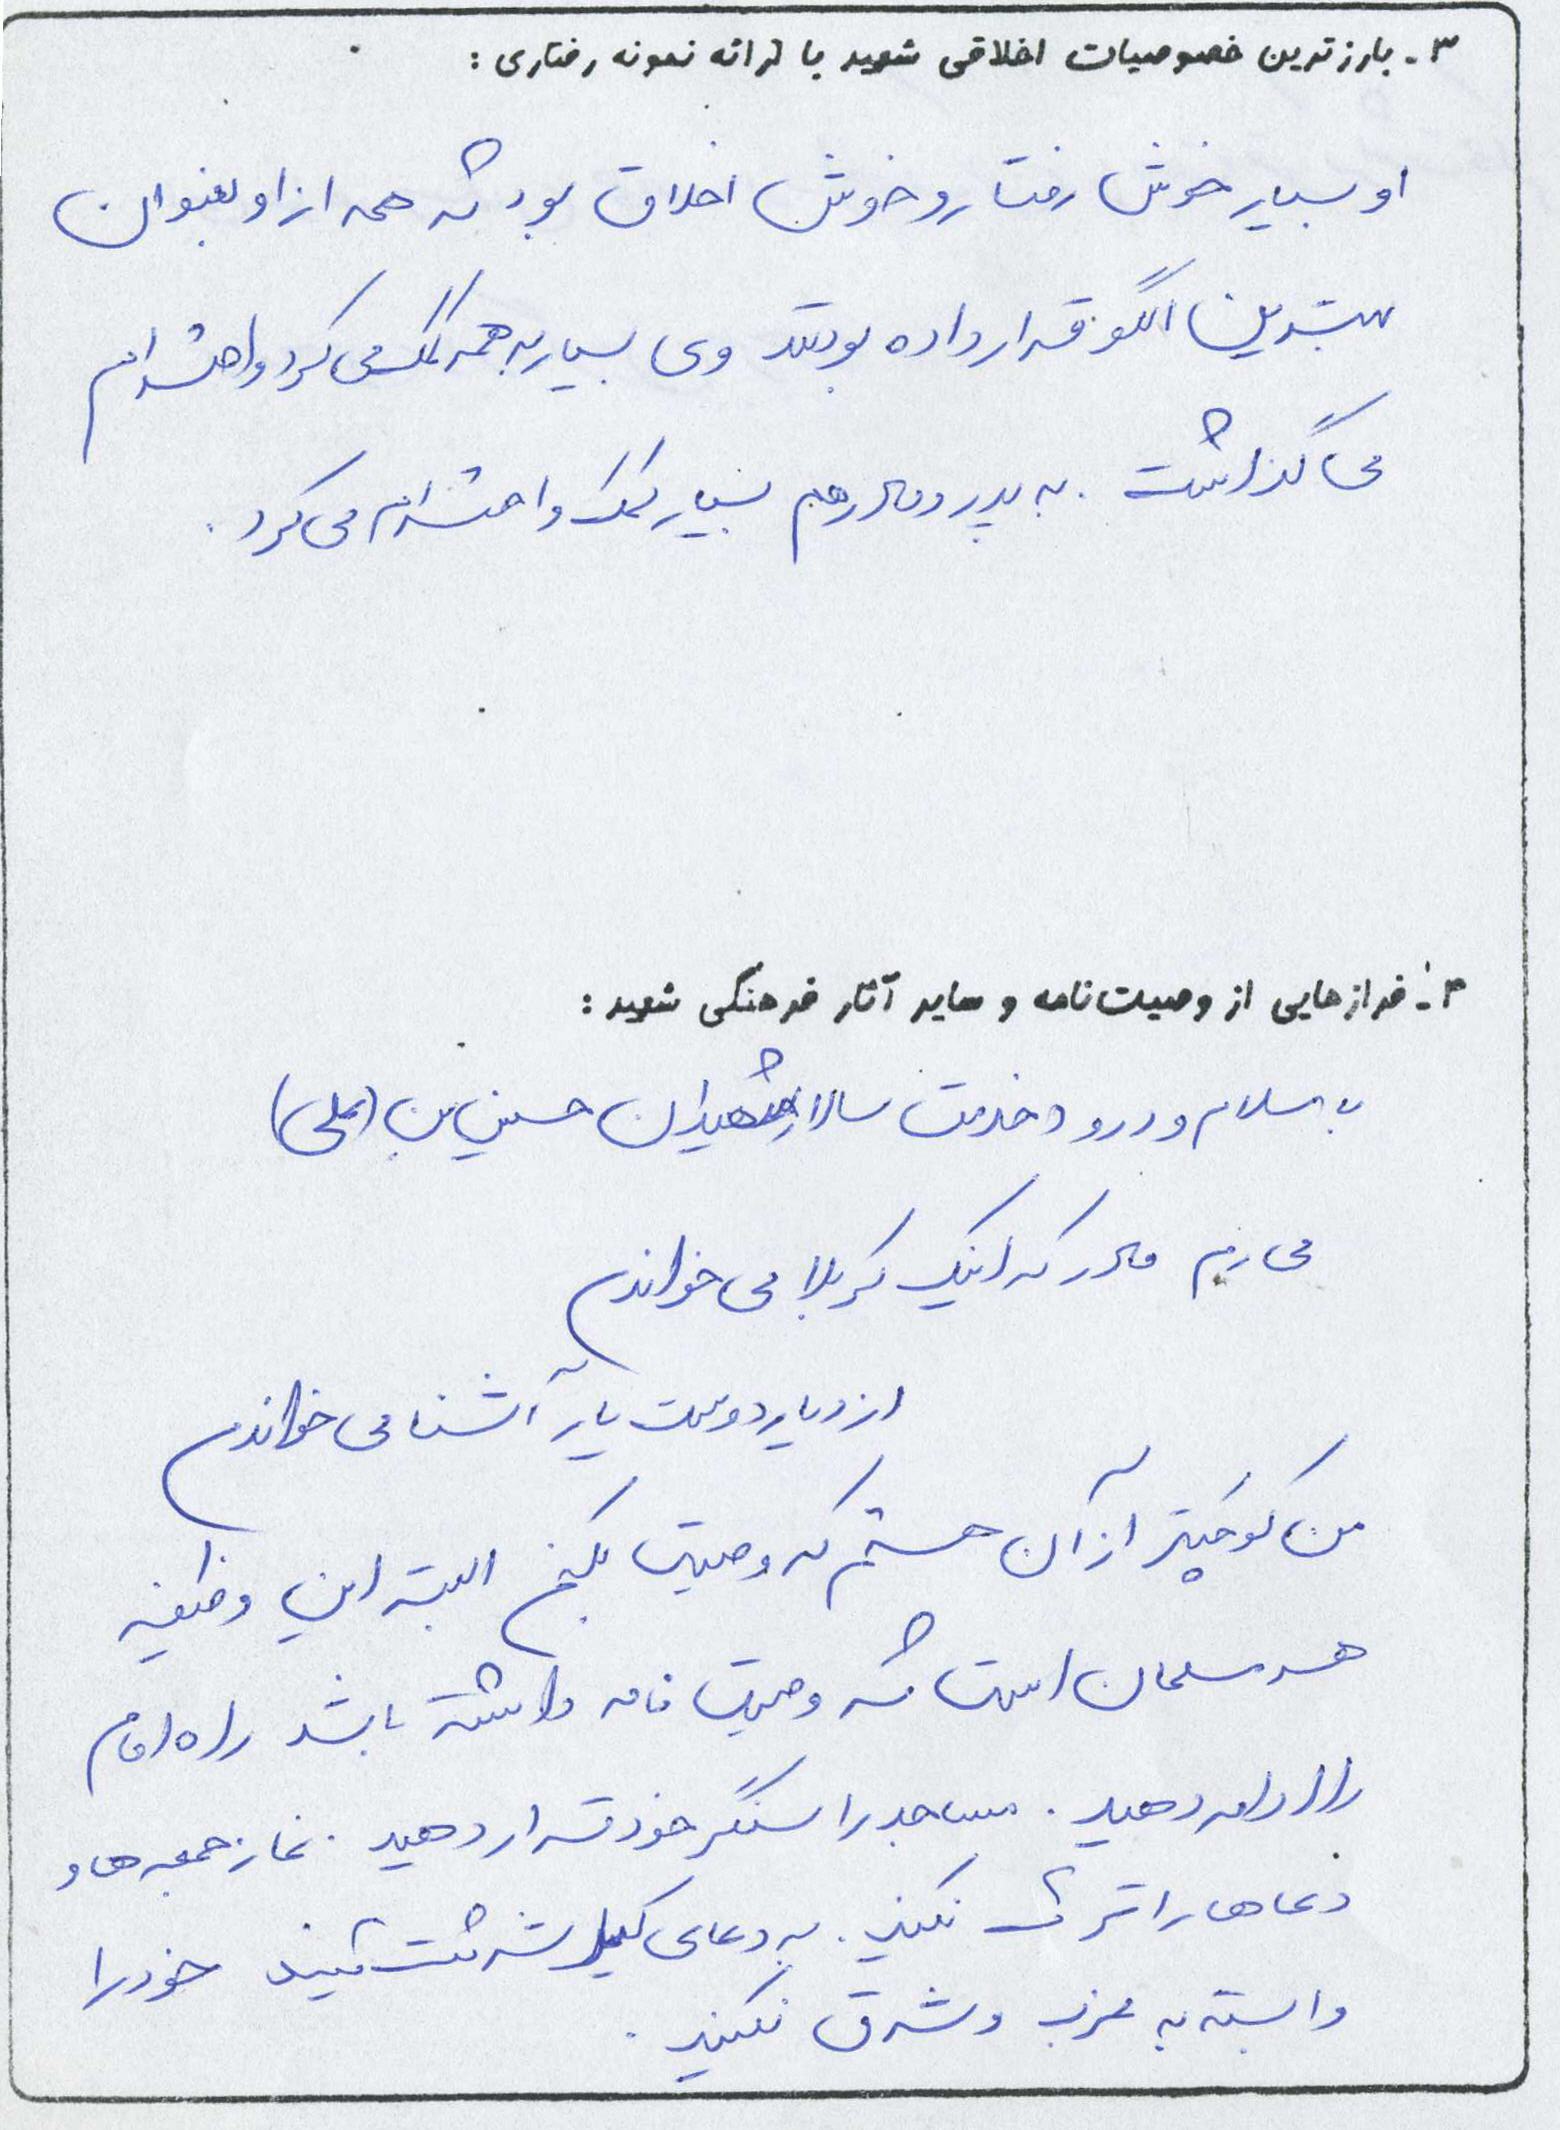 ۳- بارزترین خصوصیات اخلاقی شهید با ارائه نمونه رفتاری :
او بسیار خوش رفتار و خوش اخلاق بود که همه از او بعنوان
بهترین الگو قرار داده بودند وی بسیار به همه کمک می کرد و احترام
می گذاشت . به پدر و مادر هم بسیار کمک و احترام می کرد .
۴- فرازهایی از وصیت‌نامه و سایر آثار فرهنگی شهید :
با سلام و درود خدمت سالار شهیدان حسین بن (علی)
می رم مادر که اینک کربلا می خواندم
از دیار دوست یار آشنا می خواندم
من کوچکتر از آن هستم که وصیت بکنم البته این وظیفه
هر مسلمان است که وصیت نامه داشته باشد راه امام
را ادامه دهید . مساجد را سنگر خود قرار دهید . نماز جمعه ها و
دعاها را ترک نکنید . به دعای کمیل شرکت کنید خود را
وابسته به غرب و شرق نکنید .